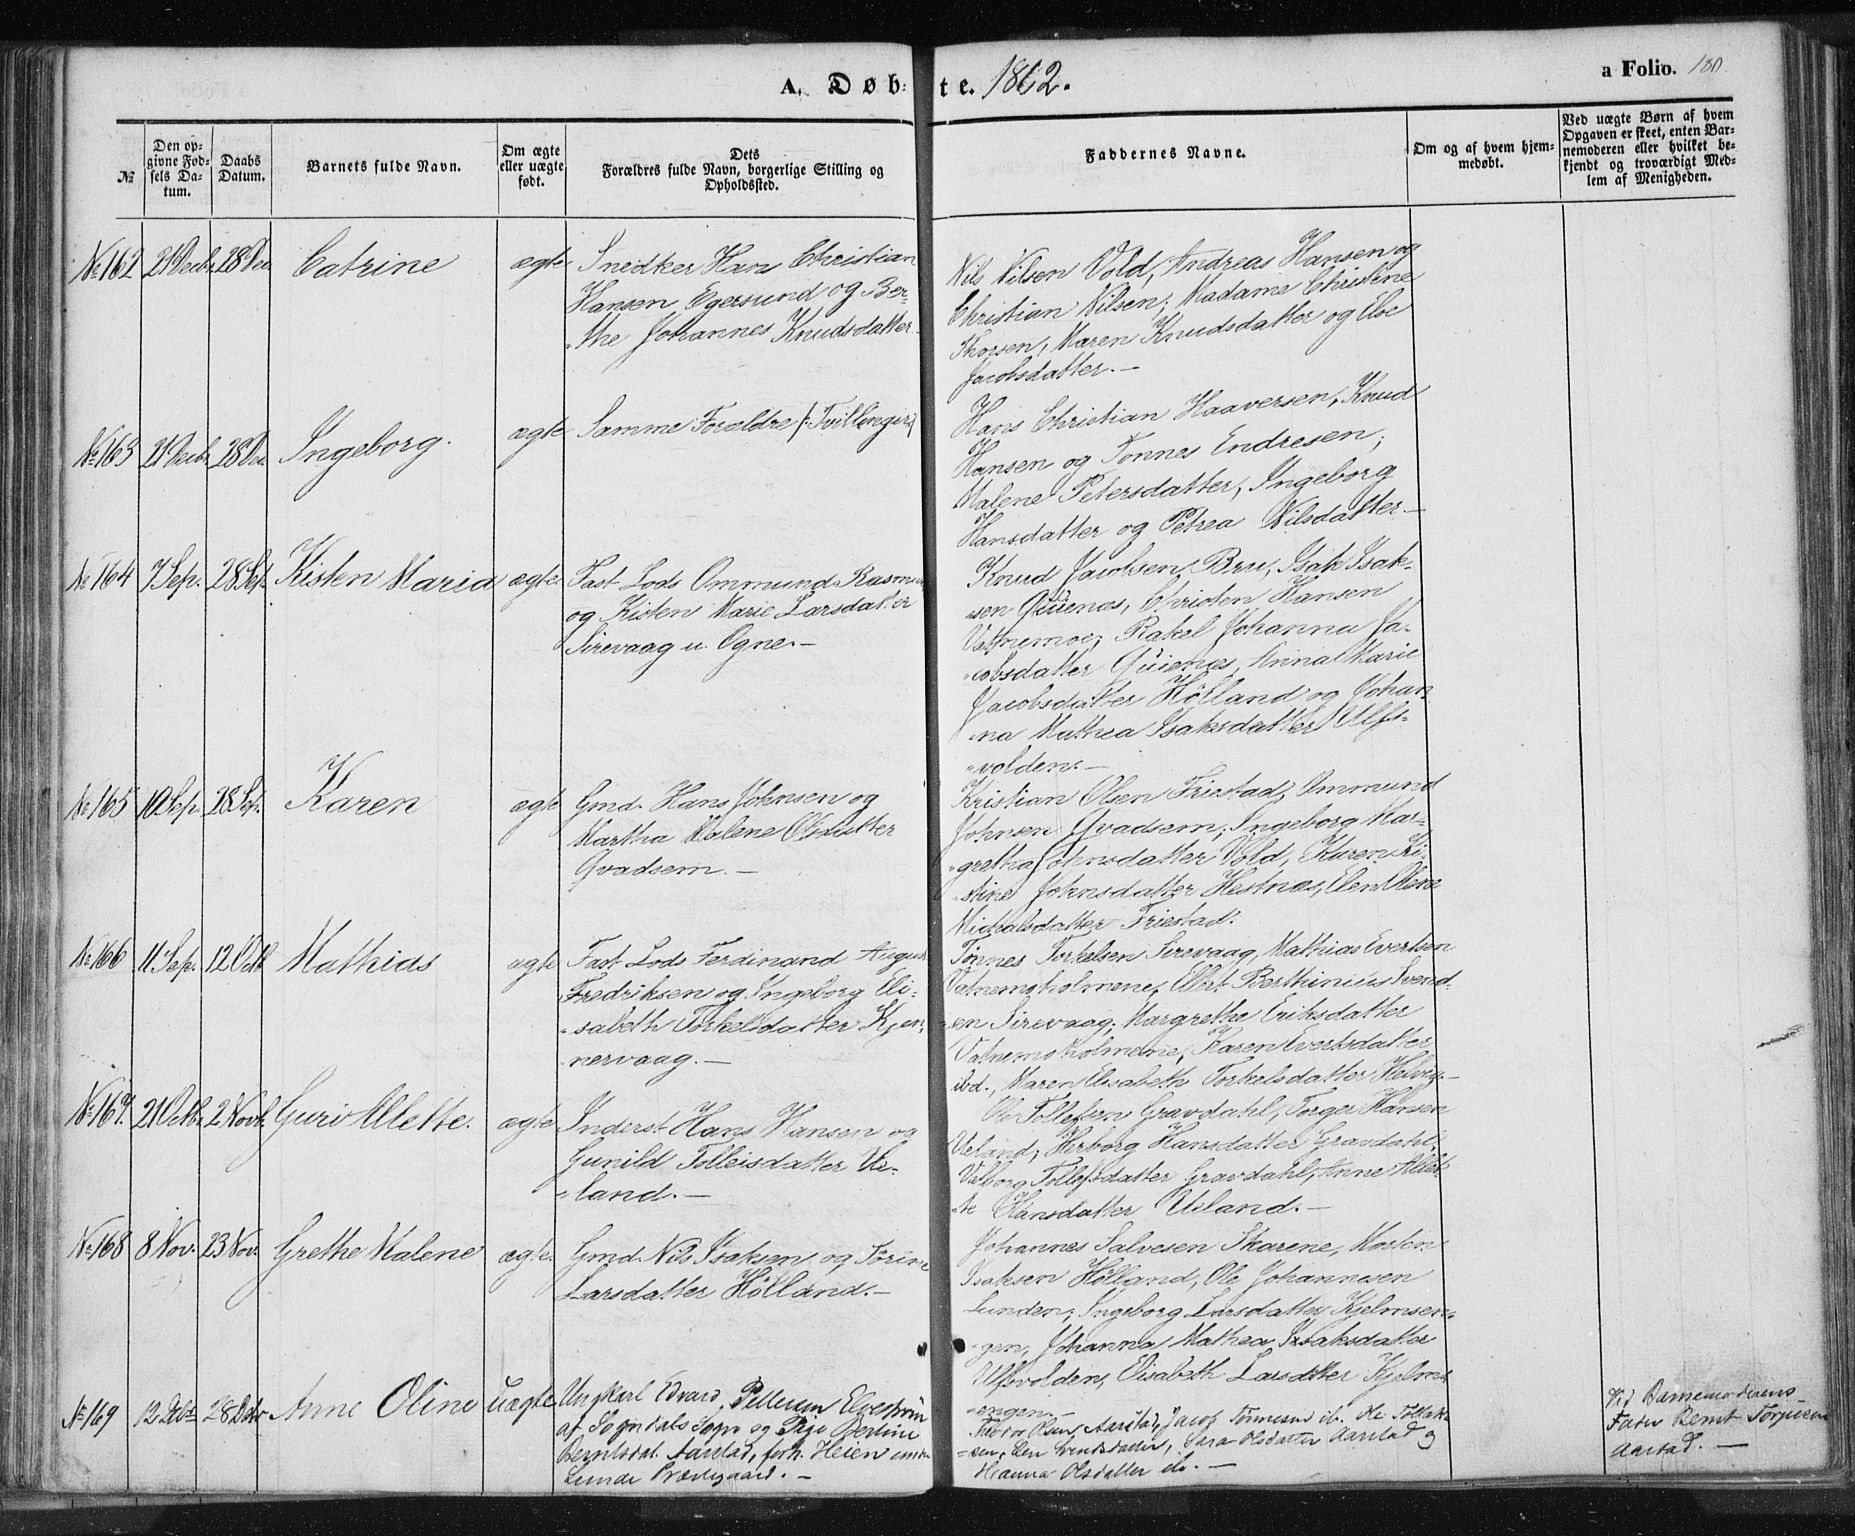 A. Døb-te. 1862.
a Folio. 180
№
Den op-
givne Fød-
sels Da-
tum.
Daabs
Datum.
Barnets fulde Navn.
Om ægte
eller uægte
født.
Dets
Forældres fulde Navn, borgerlige Stilling og
Opholdssted.
Faddernes Navne.
Om og af hvem hjem-
medøbt.
Ved uægte Børn af hvem
Opgaven er skeet, enten Bar-
nemoderen eller hvilket be-
kjendt og troværdigt Med-
lem af Menigheden.
№ 162 21 Decbr. 28 Dec. Catrine ægte Snedker Hans Christian
Hansen Egersund og Ber-
the Johannes Knudsdatter
Nils Nilsen Vold, Andreas Hansen og
Christian Nilsen; Madame Christine
Thorsen, Maren Knudsdatter og
Jacobsdatter.-
№ 163 21 Decbr. 28 Dec. Ingeborg. ægte Samme Forældre /: Tvillinger
Hans Christian Haaversen, Knud
Hansen og Tønnes Endresen;
Malene Petersdatter, Ingeborg
Hansdatter og Petrea Nilsdatter.-
№ 164 7 Sep. 28 Sep. Kisten Maria ægte Fast Lods Ommund Rasmus
og Kisten Marie Larsdatter
Sirevaag u. Ogne.-
Knud Jacobsen Bru, Isak Isak-
sen Quienæs, Christen Hansen
Vatnemoe; Rakel Johanna Ja-
cobsdatter Quienæs, Anna Marie
Jacobsdatter Hölland og Johan-
na Mathea Isaksdatter Ulfs-
volden.-
№ 165 10 Sep. 28 Sep. Karen ægte Gmd. Hans Johnsen og
Martha Malene Olsdatter
Qvadsem.-
Kristian Olsen Friestad, Ommund
Johnsen Qvadsem; Ingeborg Mar-
gretha Johnsdatter Vold, Karen Ki-
stine Johnsdatter Hestnæs, Elen Oline
Michalsdatter Friestad.
№ 166 11 Sep. 12 Octb. Mathias ægte Fast Lods Ferdinand August
Fredriksen og Ingeborg Eli-
sabeth Torkelsdatter Kjen-
nervaag.-
Tønnes Torkelsen Sirevaag, Mathias Evertsen
Vatnemoholmene, Ellert Berthinius Svend-
sen Sirevaag; Margrethe Eriksdatter
Vatnemoholmene, Karen Evertsdatter
ibd., Maren Elisabeth Torkelsdatter
№ 167. 21 Octbr. 2 Novb. Guri Allette. ægte Inderst Hans Hansen og
Gunild Tolleisdatter Ue-
land.-
Ole Tollefsen Gravdahl, Torger Hansen
Ueland; Herborg Hansdatter Gravdahl,
Valborg Tollefsdatter Gravdahl, Anne Allet-
te Hansdatter Ueland.-
№ 168 8 Nov. 23 Nov. Grethe Malene ægte. Gmd. Nils Isaksen og Torine
Larsdatter Hölland.-
Johannes Salvesen Skarene, Morten
Isaksen Hölland, Ole Johannesen
Lunden; Ingeborg Larsdatter Kjelmsen-
gen, Johanna Mathea Isaksdatter
Ulfsvolden, Elisabeth Larsdatter Kjelms-
engen.-
№ 169 12 28 Anne Oline uægte Ungkarl Edvard Pettersen
af Sogndals Sogn og Pige Bertine
Berntsdat. Aarstad, forh. Heien under
Lunde Præstegaard.-
Theodor Olsen Aarstad, Jacob Tønnesen ib. Ole
sen, Elen Svendsdatter, Sara Olsdatter Aarstad og
Hanna Olsdatter ib.-
Ved Barnemoderens
Fader Bernt Torjusen
Aarstad.-